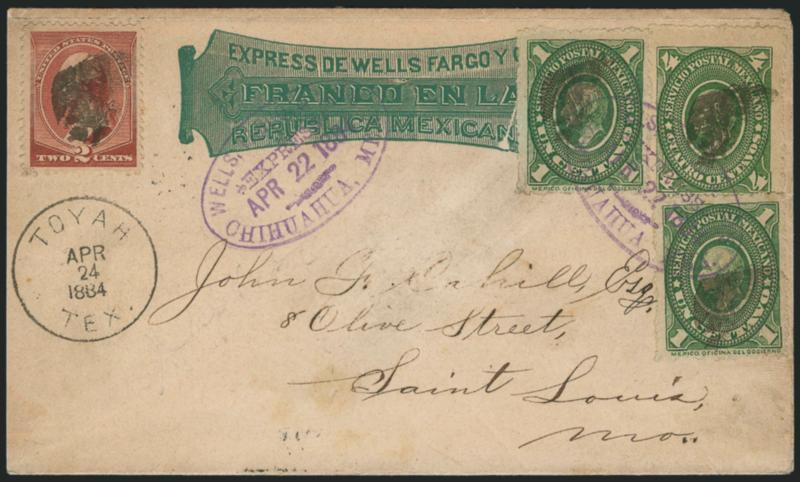 UNITED STATES POSTAGE
2
TWO CENTS
EXPRESS DE WELLS FARGO Y
FRANCO EN LA
REPUBLICA MEXICAN
WELLS,
EXPRESS
APR 22 18
CHIHUAHUA, ME
SERVICIO POSTAL MEXICANO
1 1
UN CENTAVO
MEXICO. OFICINA DEL GOBIERNO
SERVICIO POSTAL MEXICANO
4 4
CUATRO CENTAVOS
22
AHUA
SERVICIO POSTAL MEXICANO
1 1
UN CENTAVO
MEXICO. OFICINA DEL GOBIERNO
TOYAH
APR
24
1884
TEX.
John F. Cahill, Esq.
8 Olive Street,
Saint Louis,
Mo.